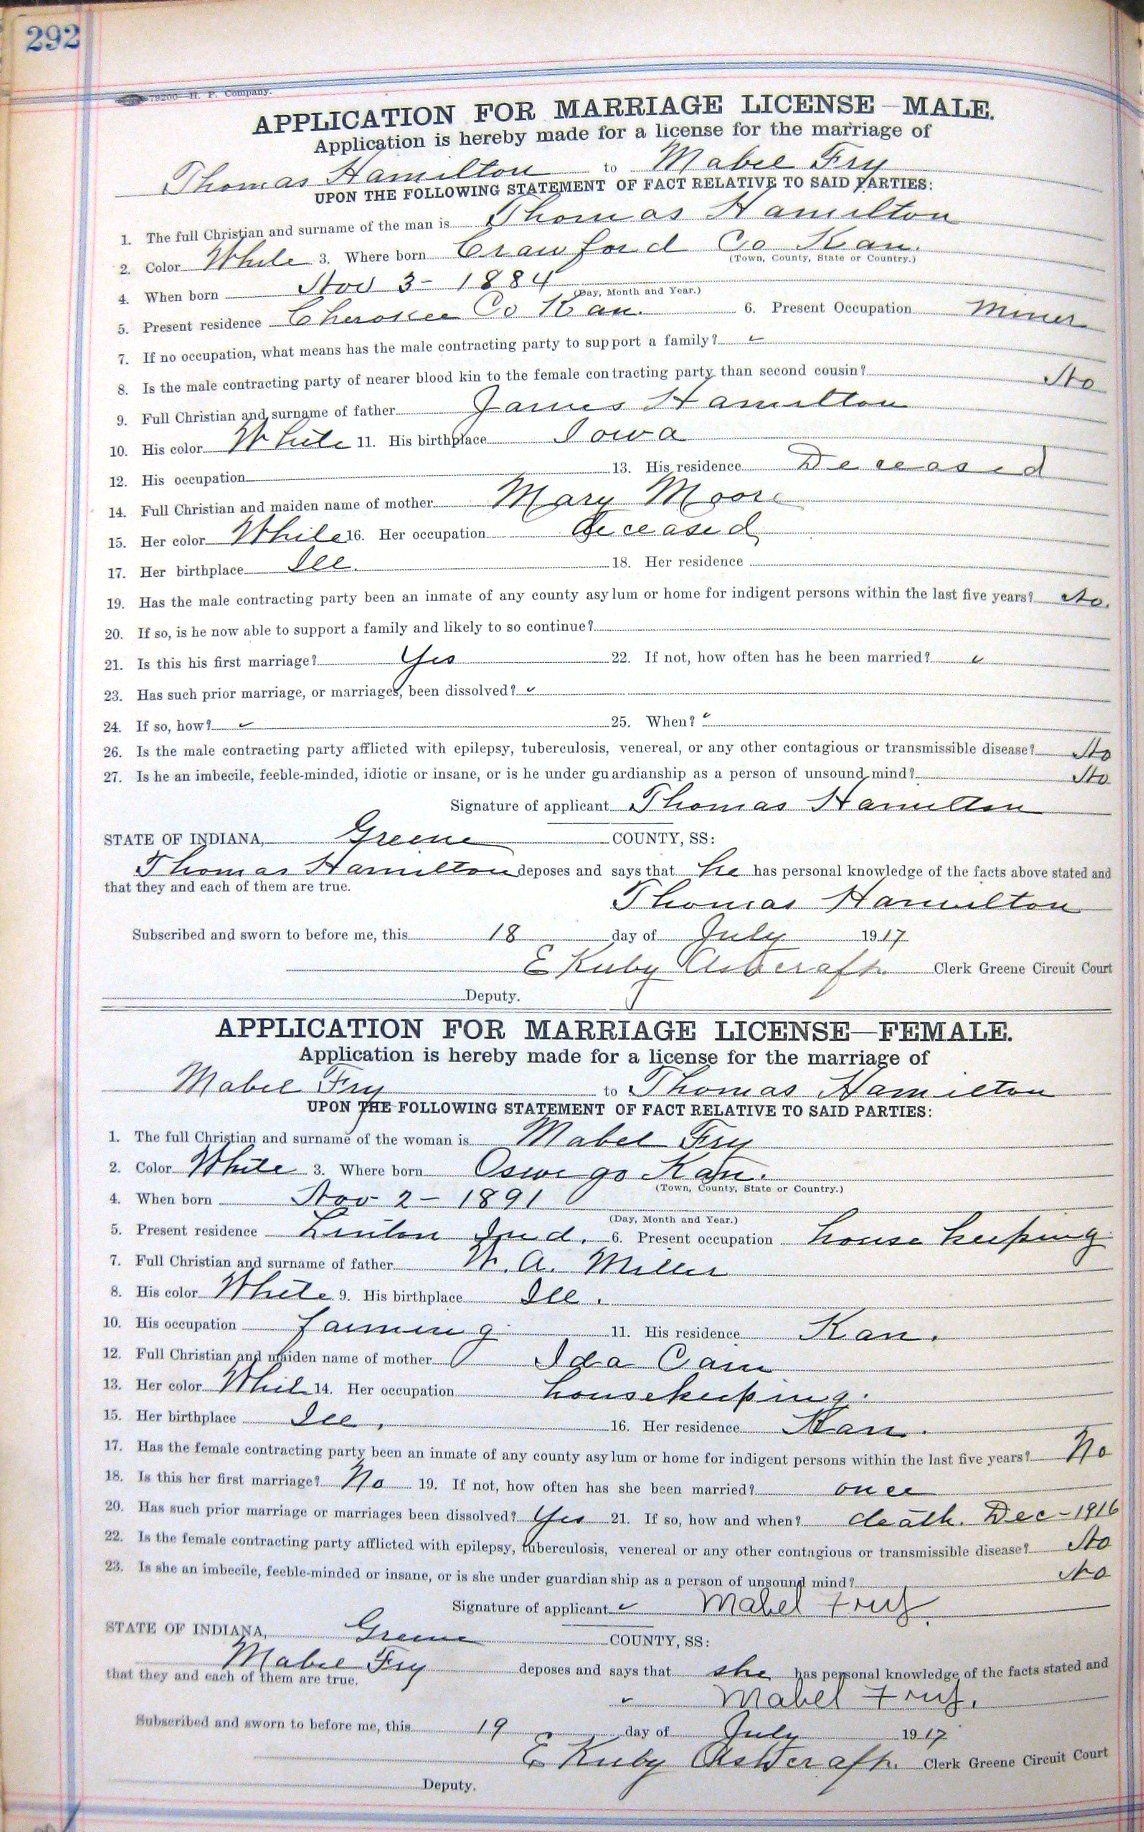 292
9200—H. P. Company.
APPLICATION FOR MARRIAGE LICENSE—MALE.
Application is hereby made for a license for the marriage of
Thomas Hamilton to Mabel Fry
UPON THE FOLLOWING STATEMENT OF FACT RELATIVE TO SAID PARTIES:
1. The full Christian and surname of the man is Thomas Hamilton
2. Color White 3. Where born Crawford Co Kan.
(Town, County, State or Country.)
4. When born Nov 3 - 1884
(Day, Month and Year.)
5. Present residence Cherokee Co Kan. 6. Present Occupation Miner
7. If no occupation, what means has the male contracting party to support a family? ✓
8. Is the male contracting party of nearer blood kin to the female contracting party than second cousin? No
9. Full Christian and surname of father James Hamilton
10. His color White 11. His birthplace Iowa
12. His occupation 13. His residence Deceased
14. Full Christian and maiden name of mother Mary Moore
15. Her color White 16. Her occupation deceased
17. Her birthplace Ill. 18. Her residence
19. Has the male contracting party been an inmate of any county asylum or home for indigent persons within the last five years? No.
20. If so, is he now able to support a family and likely to so continue?
21. Is this his first marriage? Yes 22. If not, how often has he been married? ✓
23. Has such prior marriage, or marriages, been dissolved? ✓
24. If so, how? ✓ 25. When? ✓
26. Is the male contracting party afflicted with epilepsy, tuberculosis, venereal, or any other contagious or transmissible disease? No
27. Is he an imbecile, feeble-minded, idiotic or insane, or is he under guardianship as a person of unsound mind? No
Signature of applicant Thomas Hamilton
STATE OF INDIANA, Greene COUNTY, SS:
Thomas Hamilton deposes and says that he has personal knowledge of the facts above stated and
that they and each of them are true.
Thomas Hamilton
Subscribed and sworn to before me, this 18 day of July 1917
E Kirby Ashcraft Clerk Greene Circuit Court
Deputy.
APPLICATION FOR MARRIAGE LICENSE—FEMALE.
Application is hereby made for a license for the marriage of
Mabel Fry to Thomas Hamilton
UPON THE FOLLOWING STATEMENT OF FACT RELATIVE TO SAID PARTIES:
1. The full Christian and surname of the woman is Mabel Fry
2. Color White 3. Where born Oswego Kan.
(Town, County, State or Country.)
4. When born Nov 2 - 1891
(Day, Month and Year.)
5. Present residence Linton Ind. 6. Present occupation house keeping
7. Full Christian and surname of father W. A. Miller
8. His color White 9. His birthplace Ill.
10. His occupation farming 11. His residence Kan.
12. Full Christian and maiden name of mother Ida Cain
13. Her color Whit 14. Her occupation housekeeping.
15. Her birthplace Ill. 16. Her residence Kan.
17. Has the female contracting party been an inmate of any county asylum or home for indigent persons within the last five years? No
18. Is this her first marriage? No 19. If not, how often has she been married? once
20. Has such prior marriage or marriages been dissolved? Yes 21. If so, how and when? death. Dec - 1916
22. Is the female contracting party afflicted with epilepsy, tuberculosis, venereal or any other contagious or transmissible disease? No
23. Is she an imbecile, feeble-minded or insane, or is she under guardianship as a person of unsound mind? No
Signature of applicant ✓ Mabel Fry.
STATE OF INDIANA, Greene COUNTY, SS:
Mabel Fry deposes and says that she has personal knowledge of the facts stated and
that they and each of them are true.
✓ Mabel Fry.
Subscribed and sworn to before me, this 19 day of July 1917
E Kirby Ashcraft. Clerk Greene Circuit Court
Deputy.